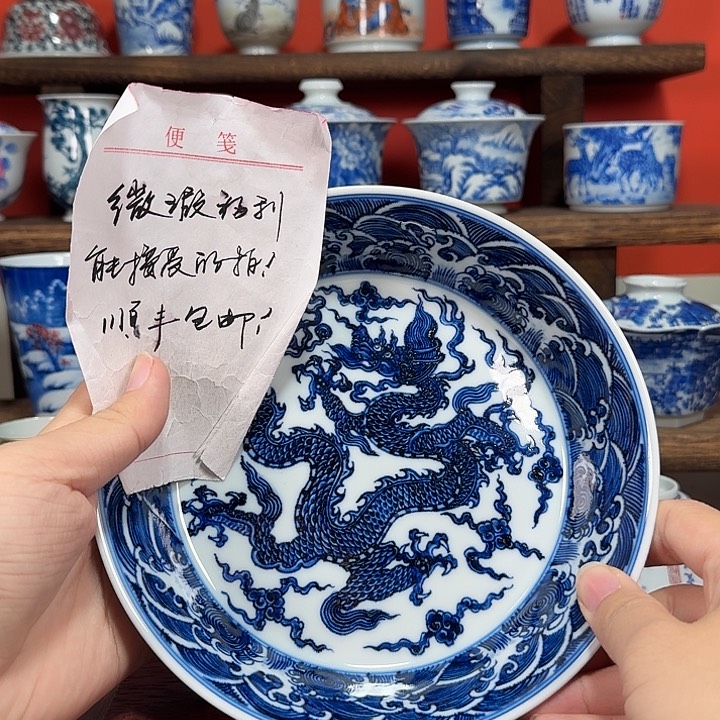 便笺
微瑕福利
能接受的拍！
顺丰包邮！